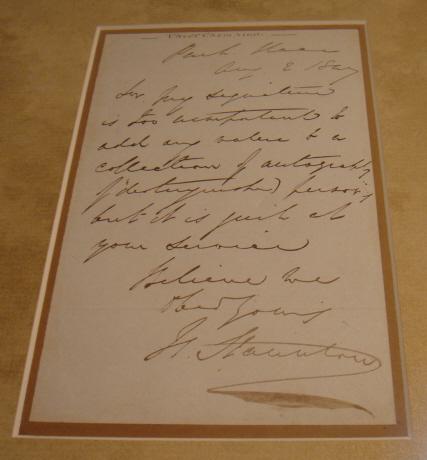 Park
Aug 2 18
Sir My signature
is too
add any value to a
collection of autographs
of distinguished persons
but it is quite at
your service
Believe me
Yours
H. Staunton